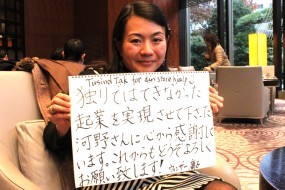 Tusind Tak for din store hjælp
独りではできなかった
起業を実現させて下さた
河野さんに心から感謝して
います。これからもどうぞよろしく
お願い致します!